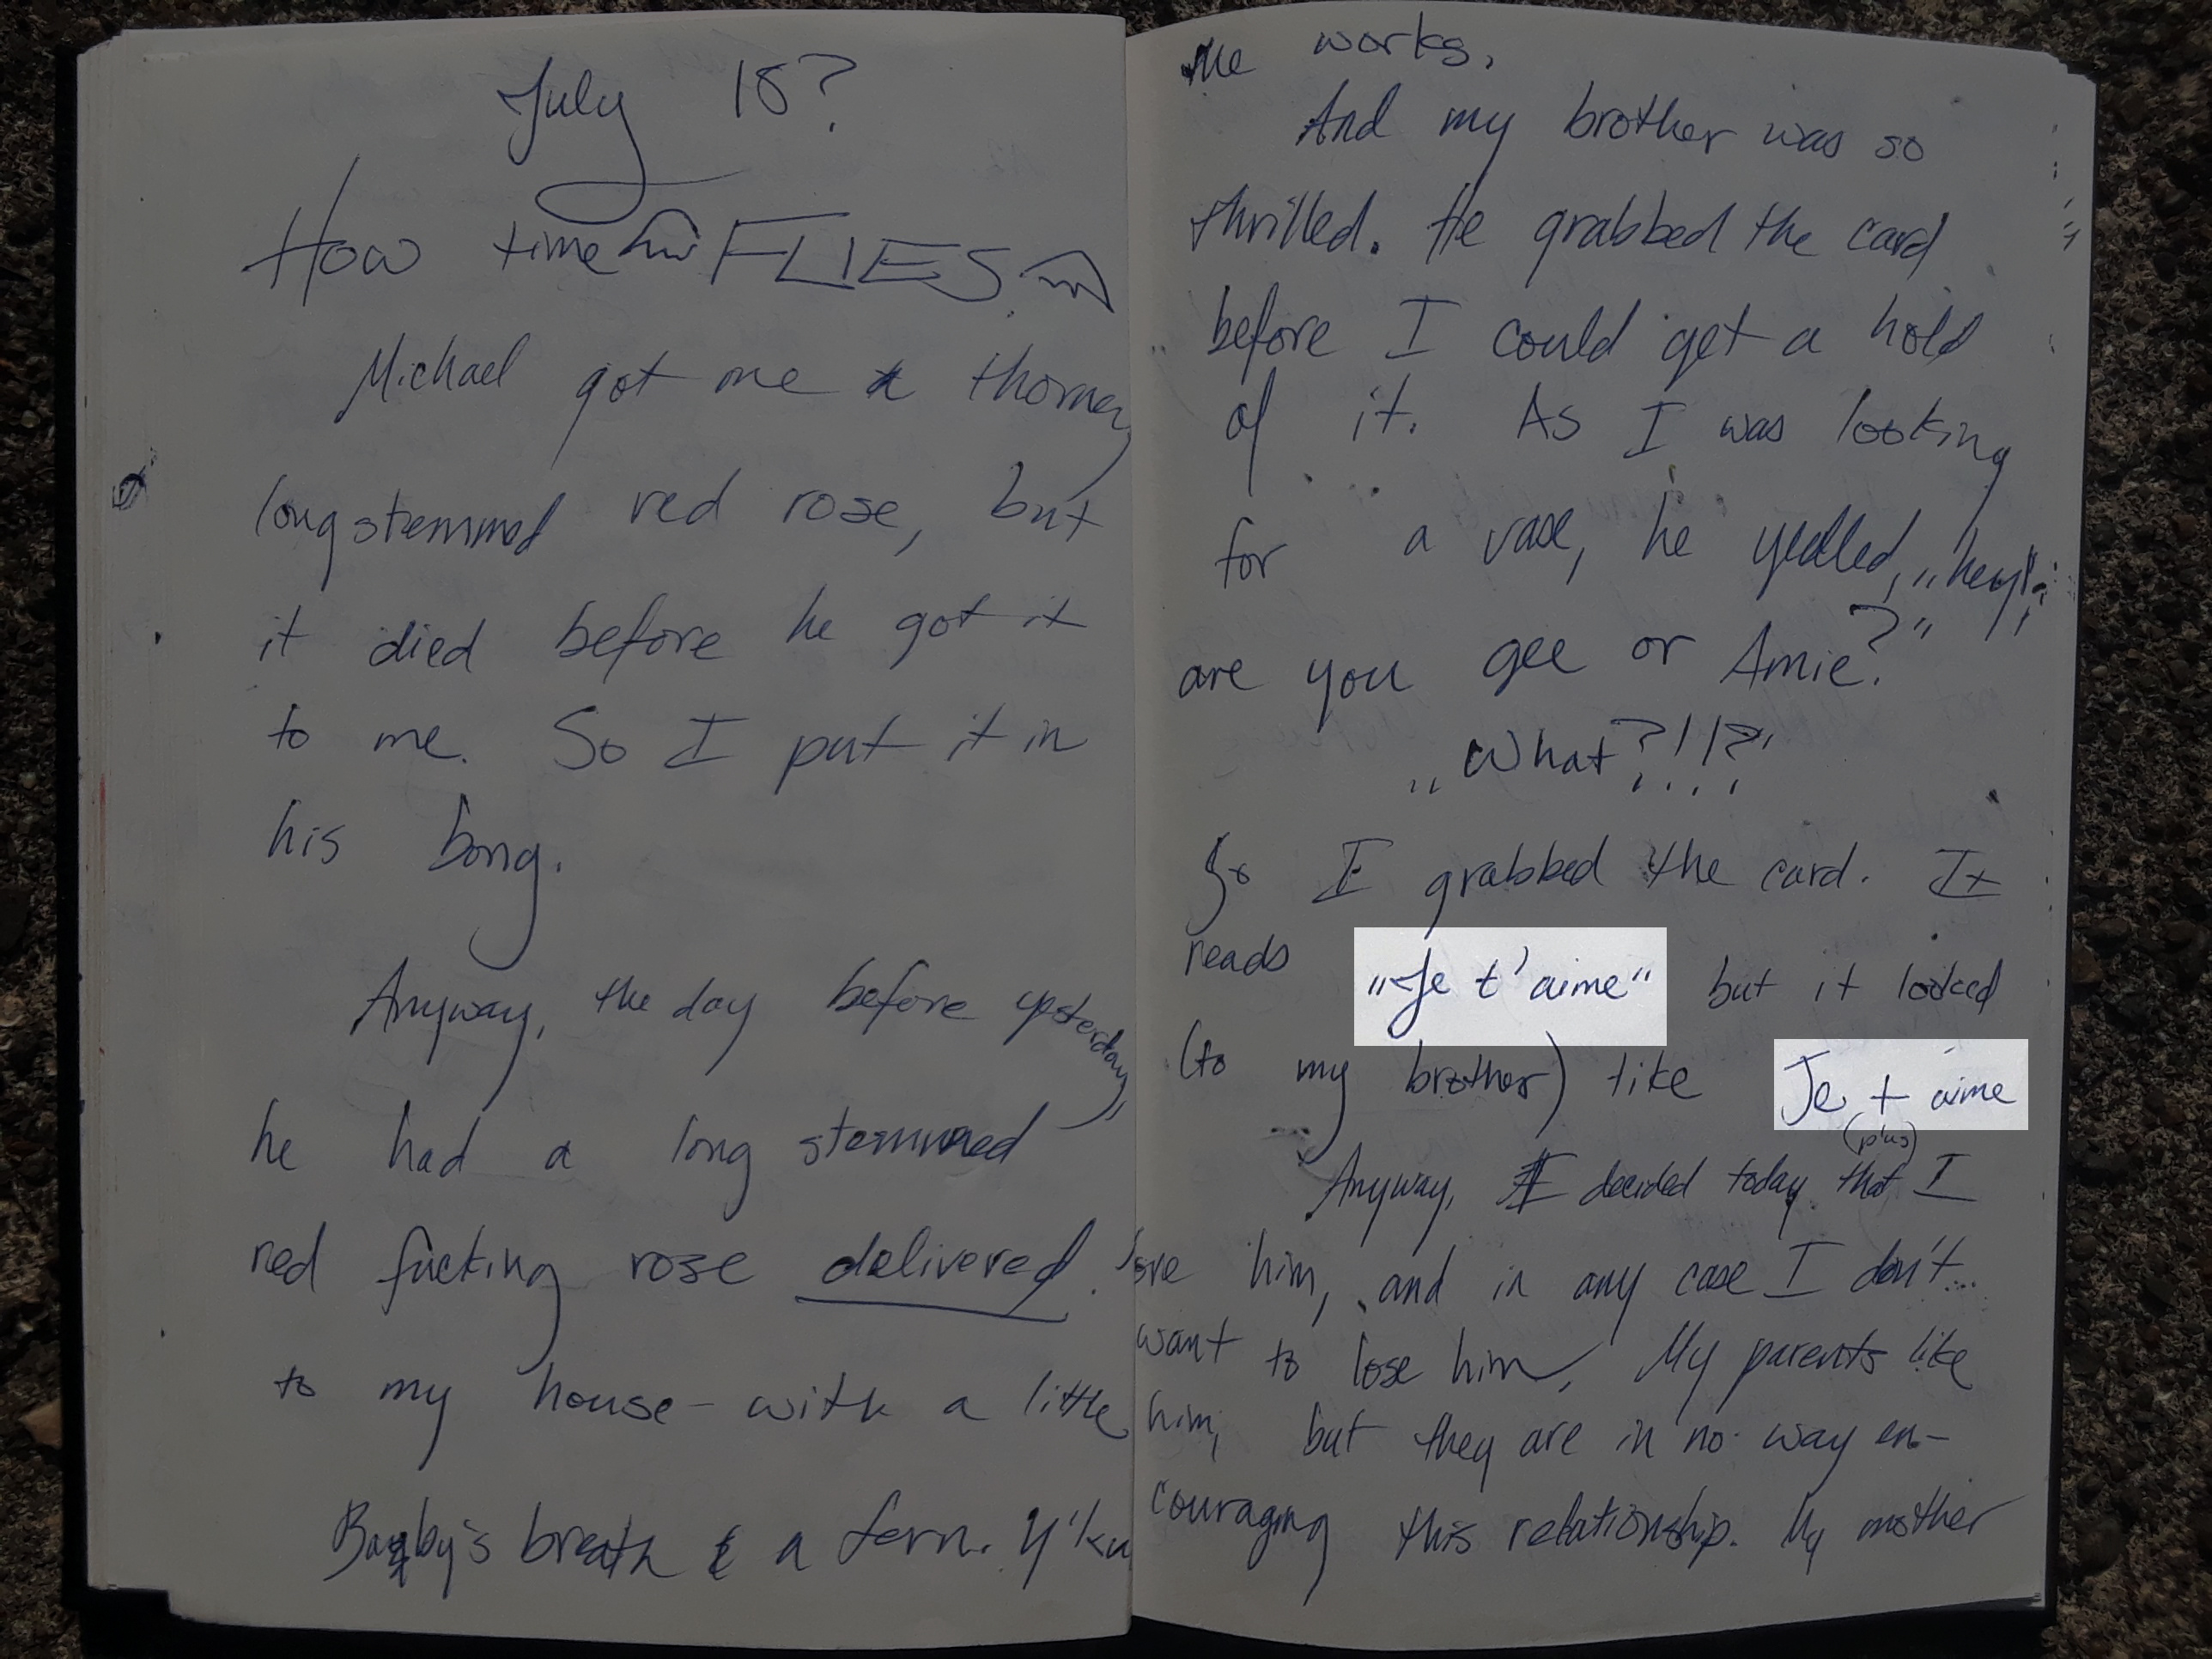 July 18?
How time FLIES
Michael got me a thorney
long stemmed red rose, but
it died before he got it
to me. So I put it in
his bong.
Anyway, the day before yesterday,
he had a long stemmed
red fucking rose delivered.
to my house - with a little
Baby's breath & a fern. Y'kn
the works.
And my brother was so
thrilled. He grabbed the card
before I could get a hold
of it. As I was looking
for a vase, he yelled, „hey!
are you gee or Amie?"
„What?!!?"
So I grabbed the card. It
reads „Je t'aime" but it looked
(to my brother) like Je + aime
(plus)
Anyway, I decided today that I
love him, and in any case I don't...
want to lose him. My parents like
him, but they are in no way en-
couraging this relationship. My mother